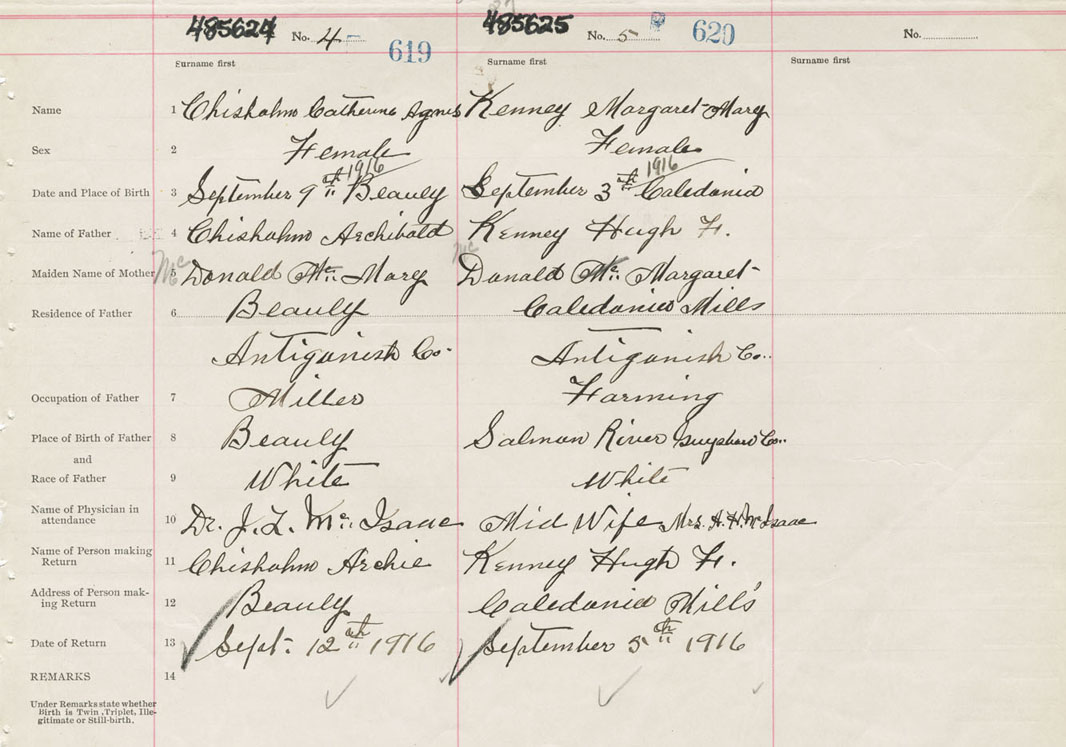 485624 No. 4- 619 485625 No. 5- 620 No.
Surname first Surname first Surname first
Name 1 Chisholm Catherine Agnes Kenney Margaret Mary
Sex 2 Female Female
1916 1916
Date and Place of Birth 3 September 9th Beauly September 3th Caledonia
Name of Father 4 Chisholm Archibald Kenney Hugh F.
Mc Mc
Maiden Name of Mother 5 Donald Mc. Mary Donald Mc. Margaret
Residence of Father 6 Beauly Caledonia Mills
Antigonish Co. Antigonish Co..
Occupation of Father 7 Miller Farming
Place of Birth of Father 8 Beauly Salmon River Guysboro Co..
and
Race of Father 9 White White
Name of Physician in
attendance 10 Dr. J. L. Mc. Isaac Mid Wife Mrs. A. H. Mc Isaac
Name of Person making
Return 11 Chisholm Archie Kenney Hugh F.
Address of Person mak-
ing Return 12 Beauly Caledonia Mill's
Date of Return 13 Sept. 12th 1916 September 5th 1916
REMARKS 14
Under Remarks state whether
Birth is Twin, Triplet, Ille-
gitimate or Still-birth.